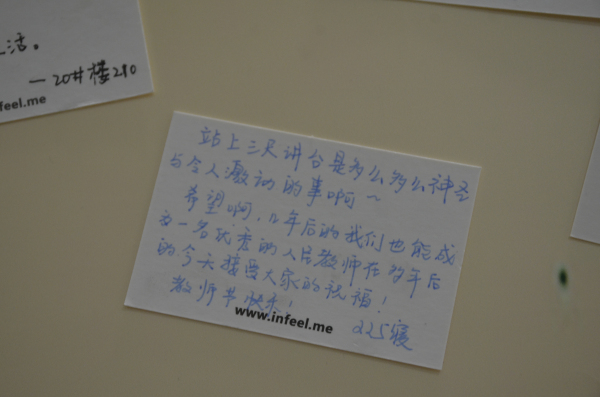 活。
一20#楼210
nfeel.me
站上三尺讲台是多么多么神圣
与令人激动的事啊~
希望啊,几年后的我们也能成
为一名优秀的人民教师在多年后
的今天接受大家的祝福!
教师节快乐!
www.infeel.me
225寝